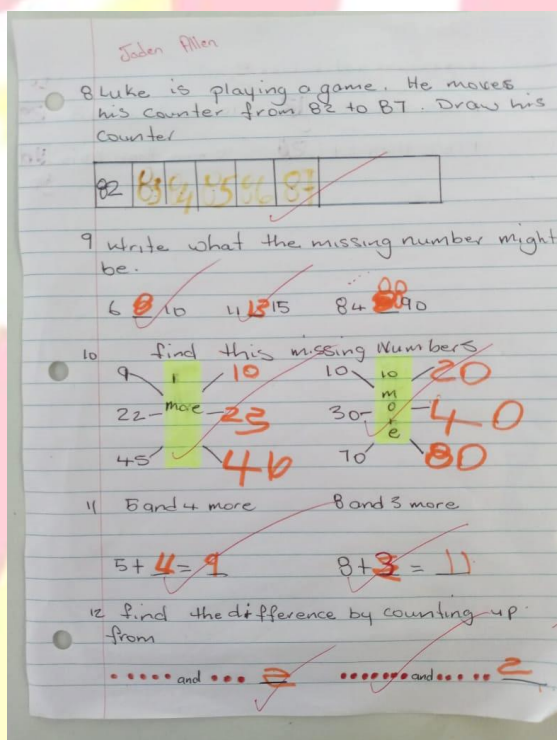 Jaden Allen
8 Luke is playing a game. He moves
his counter from 82 to 87. Draw his
counter
82 83 84 85 86 87
9 write what the missing number might
be.
6 8 10 11 13 15 84 90
10 find this missing Numbers
9 1 10 10 10 20
22 - more - 23 30 - more - 40
45 46 70 80
11 5 and 4 more 8 and 3 more
5 + 4 = 9 8 + 3 = 11
12 find the difference by counting up
from
and 2 and 2